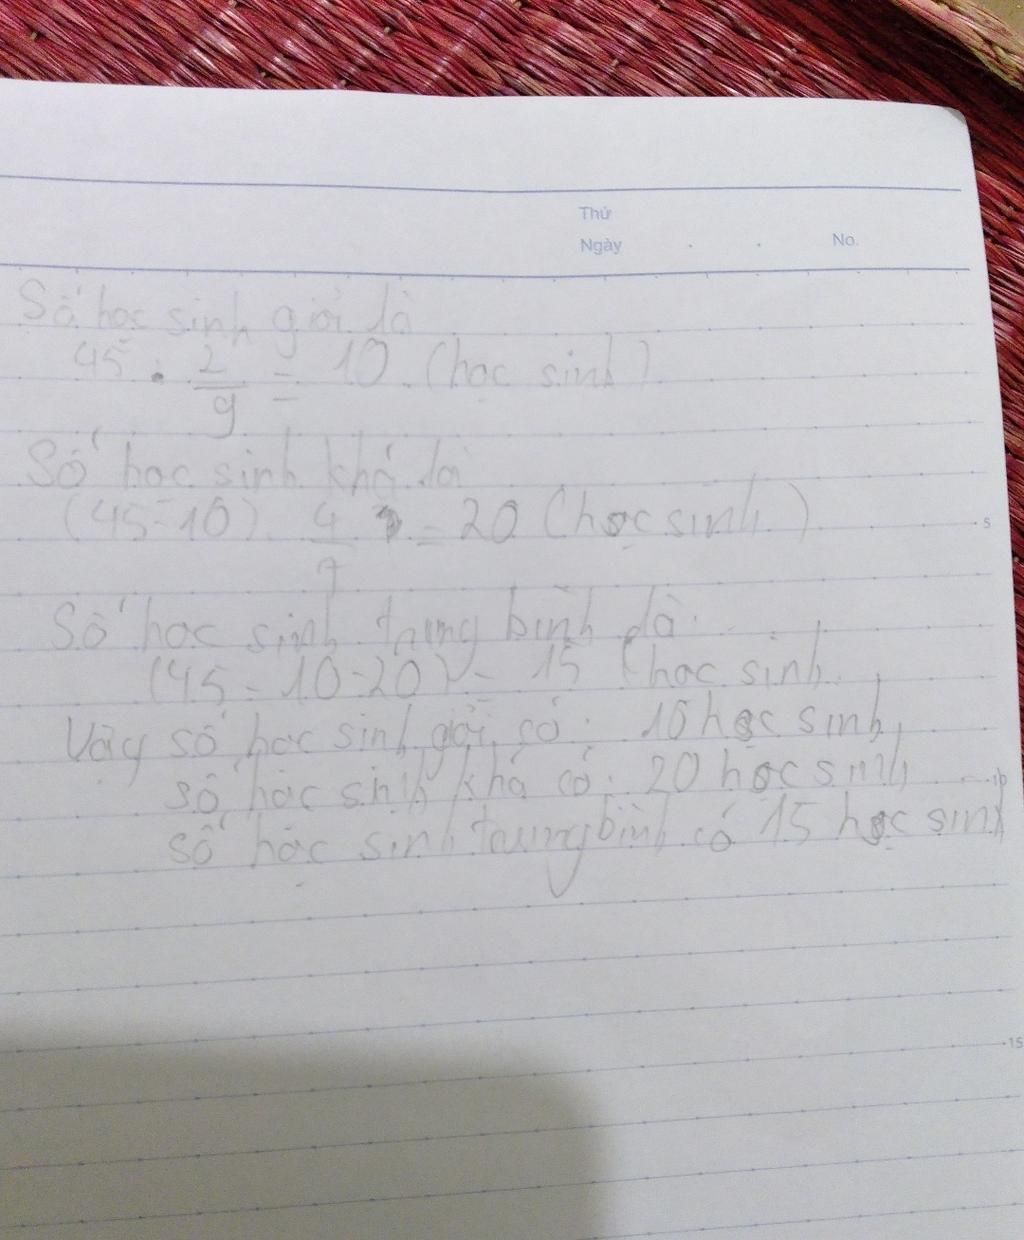 Thứ
Ngày . . No.
Số học sinh giỏi là
45 . 2/9 = 10 (học sinh)
Số học sinh khá là
(45-10). 4/7 = 20 (học sinh)
5
Số học sinh trung bình là:
(45 - 10-20) = 15 (học sinh
Vậy số học sinh giỏi có: 10 học sinh
số học sinh khá có: 20 học sinh
10
số học sinh trung bình có 15 học sinh
15